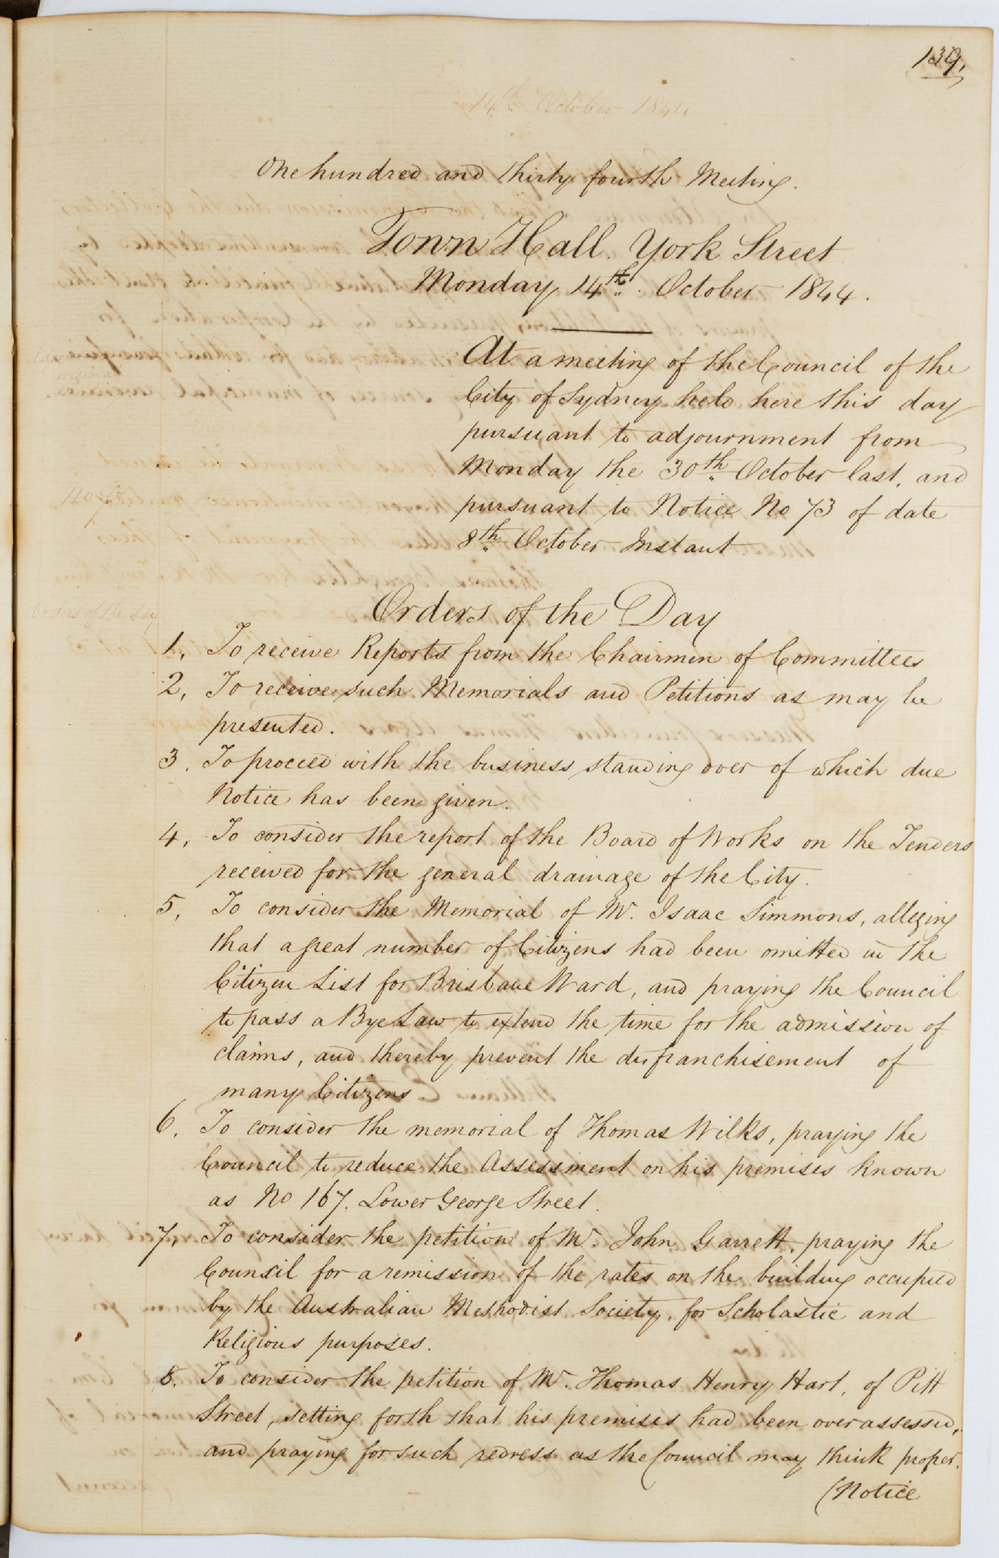 139,
14th October 1844
One hundred and thirty fourth Meeting.
Town Hall York Street
Monday 14th October 1844.
At a meeting of the Council of the
City of Sydney held here this day
pursuant to adjournment from
Monday the 30th October last, and
pursuant to Notice No 73 of date
8th October Instant.
Orders of the Day
1, To receive Reports from the Chairmen of Committees
2, To receive such Memorials and Petitions as may be
presented.
3, To proceed with the business standing over of which due
Notice has been given.
4, To consider the report of the Board of Works on the Tenders
received for the general drainage of the City.
5, To consider the Memorial of Mr. Isaac Simmons, alleging
that a great number of Citizens had been omitted in the
Citizen List for Brisbane Ward, and praying the Council
to pass a Bye Law to extend the time for the admission of
claims, and thereby prevent the disfranchisement of
many Citizens
6, To consider the memorial of Thomas Wilks, praying the
Council to reduce the Assessment on his premises known
as No 167. Lower George Street.
7, To consider the petition of Mr John Garrett, praying the
Council for a remission of the rates on the building occupied
by the Australian Methodist Society, for Scholastic and
Religious purposes.
8. To consider the petition of Mr. Thomas Henry Hart, of Pitt
Street, setting forth that his premises had been over assessed,
and praying for such redress as the Council may think proper.
(Notice